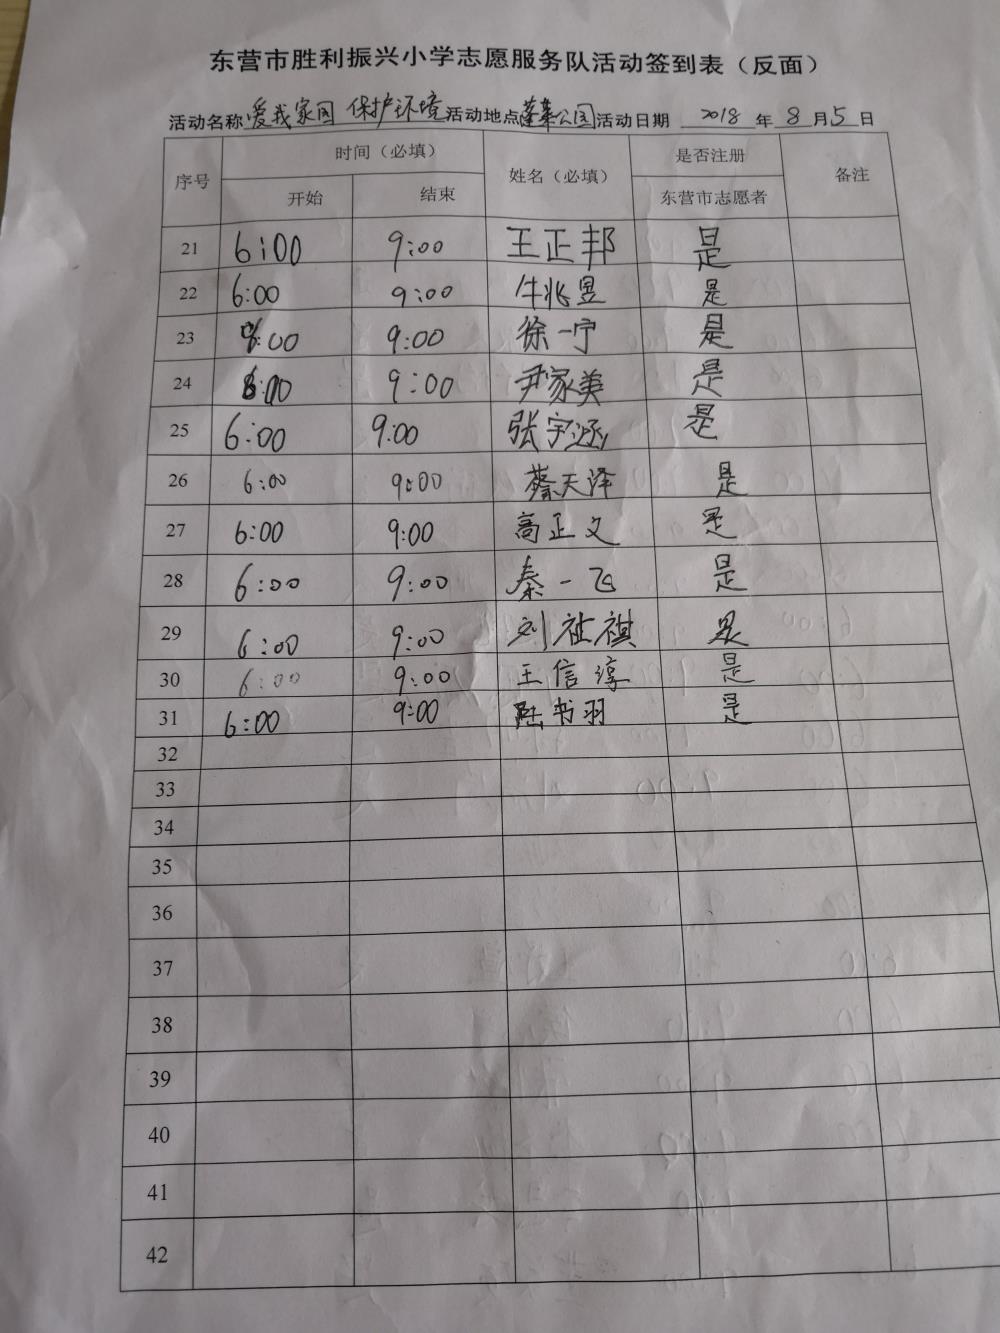 东营市胜利振兴小学志愿服务队活动签到表（反面）
活动名称 爱我家园 保护环境 活动地点 蓬莱公园 活动日期 2018 年 8 月 5 日
序号 时间（必填） 姓名（必填） 是否注册 备注
开始 结束 东营市志愿者
21 6:00 9:00 王正邦 是
22 6:00 9:00 牛兆昱 是
23 6:00 9:00 徐一宁 是
24 6:00 9:00 尹家美 是
25 6:00 9:00 张宇涵 是
26 6:00 9:00 蔡天泽 是
27 6:00 9:00 高正文 是
28 6:00 9:00 秦一飞 是
29 6:00 9:00 刘祉祺 是
30 6:00 9:00 王信淳 是
31 6:00 9:00 陆书羽 是
32
33
34
35
36
37
38
39
40
41
42